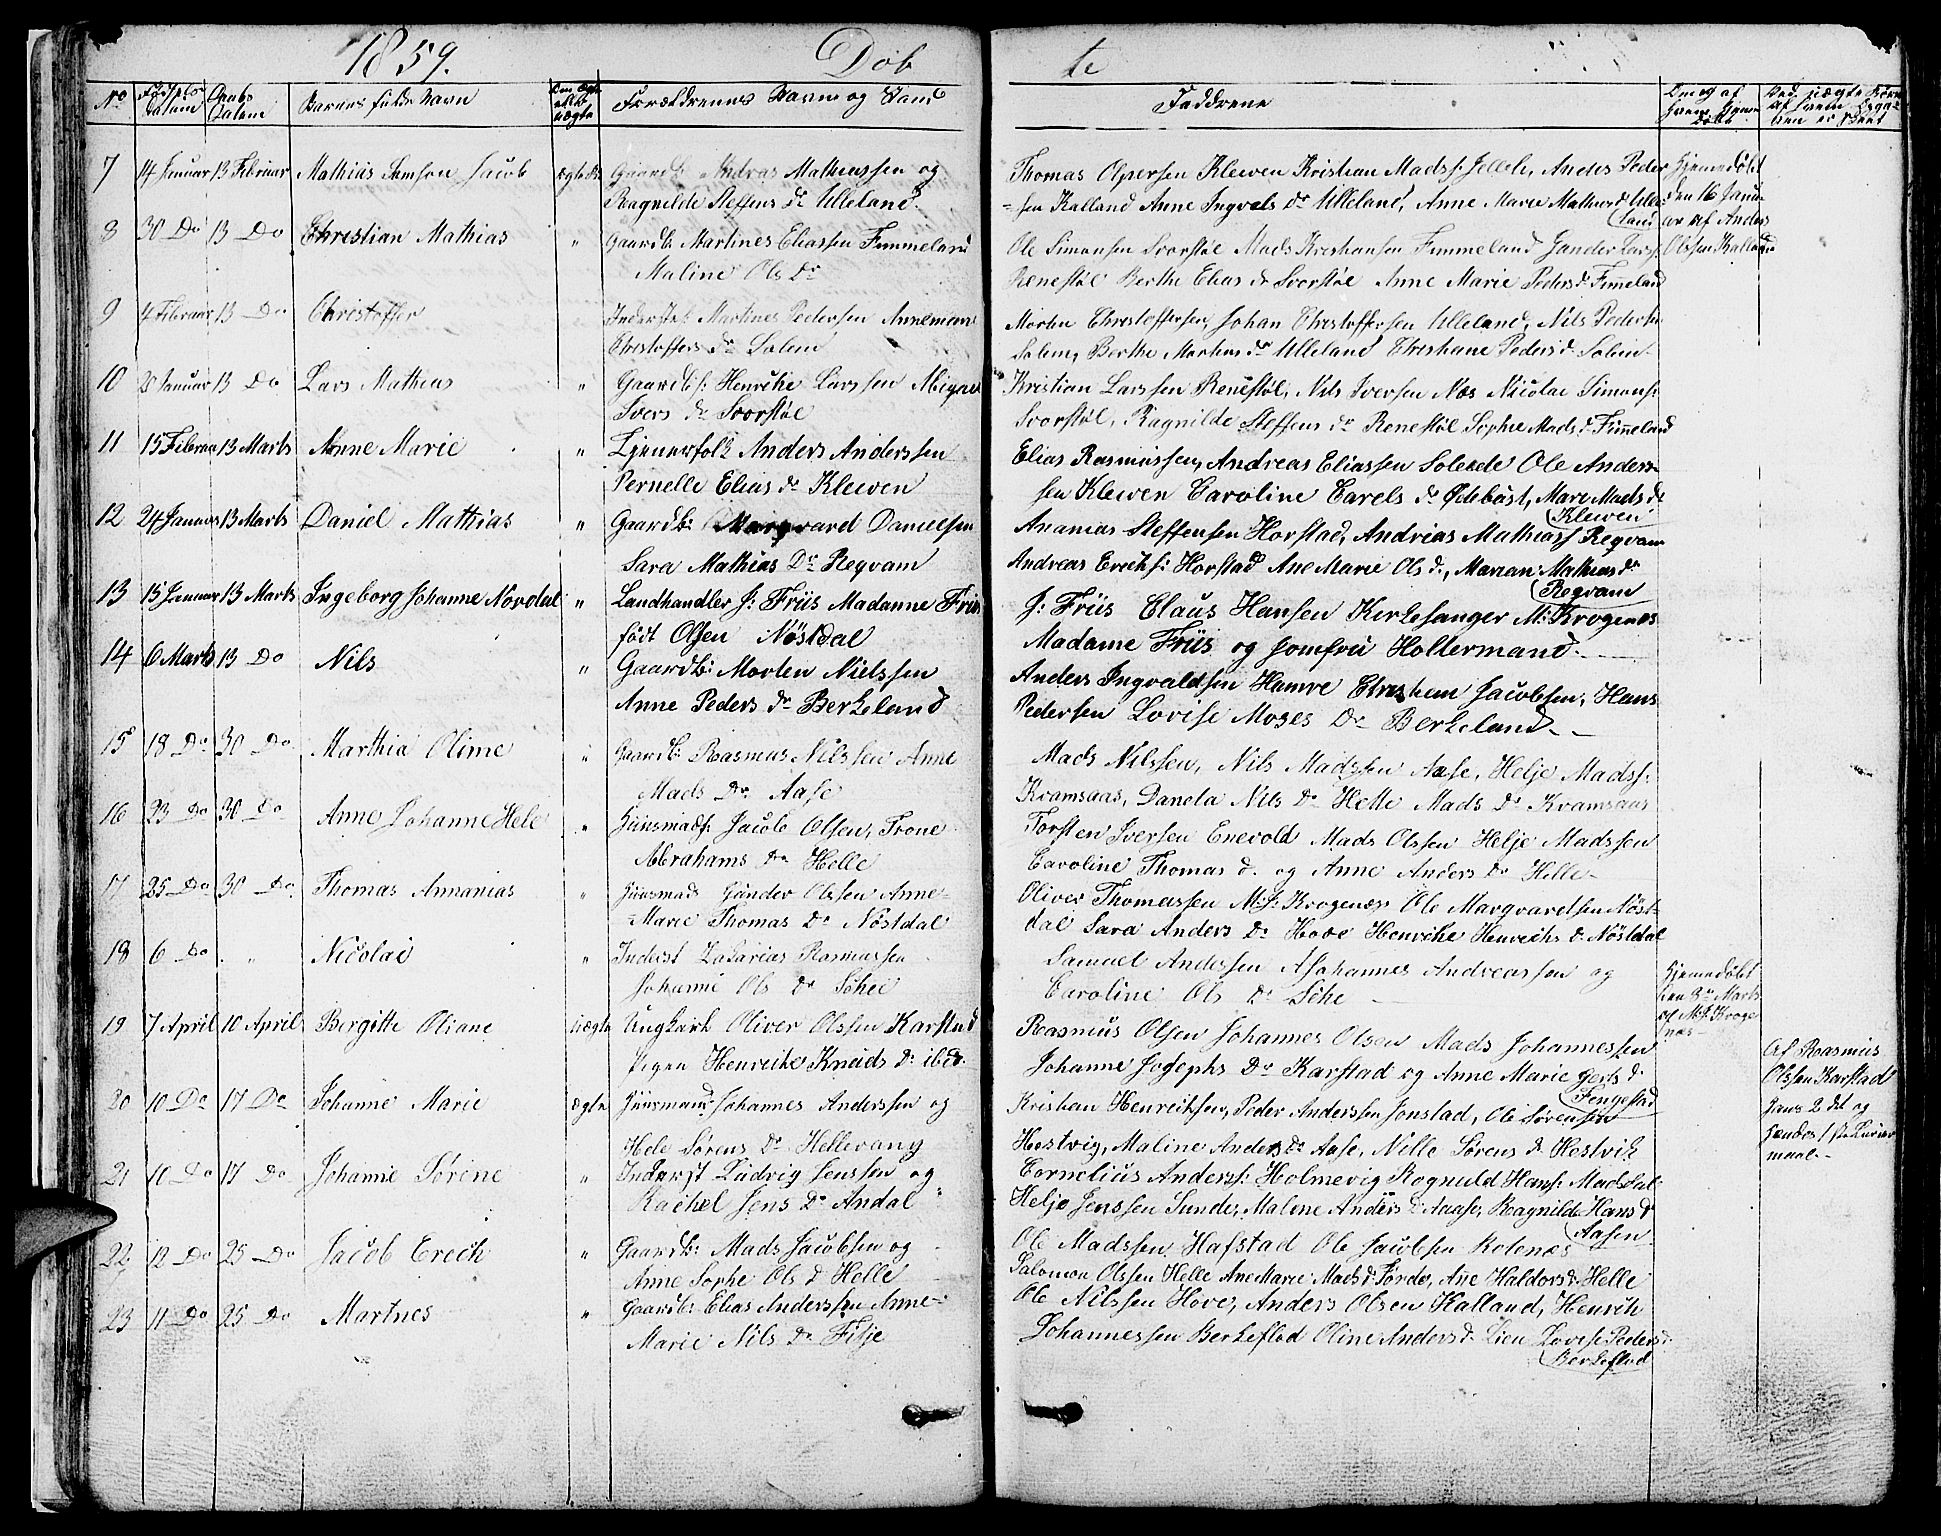 1859.
Döbte
No Födsels Datum Daabs Datum Barnets fulde Navn Om Ægte eller uægte Forældrenes Navn og Stand Faddrene Om og af hvem Hjemmedöbt
7 14 Januar 13 Februar Mathias Samson Jacob ægte Gaardb: Andreas Mathiassen og
Ragnilde Steffens Dr Ulleland.
Thomas Olpersen Klewen Kristian Madss: Anders Peder
-sen Kalland Anne Ingvals Dr Ulleland, Anne Marie Mathias d Ulle
land
Hjemmedöbt den 16 Janu
ar af Anders
Olssen Kalland
8 30 Do 13 Do Christian Mathias " Gaardb: Martines Eliassen Fimmeland
Maline Ols Dr
Ole Simonsen Svorstöl Mads Kreshansen Fimmeland Gunder Larss:
Renestöl Berthe Elias d Svorstöl Anne Marie Peders d Fimeland
9 4 Februar 13 Do Christoffer Inderst Martines Pedersen Annemarie
Christoffers Dr Solem
Morten Christoffersen, Johan Christoffersen Ulleland, Nils Pedersen
Solem, Berthe Mortens dr Ulleland Christiane Peders d. Solem
10 2 Januar 13 Do Lars Mathias " Gaardb: Henrikke Larssen Abigael
Ivers dr Svorstöl
Kristian Larssen Renestöl, Nils Iversen Næs Nicolai Simons:
Svorstöl, Ragnilde Steffens dr Renestöl Sophie Mads d. Fimeland
11 15 Februar 13 Marts Anne Marie " Tjenerfolk Anders Anderssen
Pernelle Elias dr Klewen
Elias Rasmussen, Andreas Eliassen Ole Anders
sen Klewen Caroline Carels dr Ödeböst, Mari Mads d.
Klewen
12 24 Januar 13 Marts Daniel Mathias " Gaardb: Margvard Danielsen
Sara Mathias Dr Reqvam
Ananias Steffensen Horstad, Andrias Mathiass Reqvam
Andreas Erichs: Horstad Ane Marie Ols d., Marian Mathias dr
Reqvam
13 15 Januar 13 Marts Ingeborg Johanne Novdal " Landhandler J: Friis Madamme Friis
född Olsen Nöstdal
J: Friis Claus Hansen Kirkesanger M: Krogenæs
Madame Friis og Jomfru Holtermand.
14 6 Marts 13 Do Nils " Gaardb: Morten Nielssen
Anne Peders dr Berkeland
Anders Ingvaldsen Hamre Jacobsen, Hans
Pedersen Lovise Moses Dr Berkeland
15 18 Do 30 Do Marthia Oline " Gaardb: Rasmus Nilssen Anne
Mads Dr Aase
Mads Nilssen, Nils Madssen Aase, Helje Madss:
Kvamsaas, Danela Nils Dr Helle Mads Dr Kvamsaas
16 23 Do 30 Do Anne Johanne Hele " Huusmads Jacob Olsen, Trone
Abrahams Dr Helle
Torsten Iversen Enevold Mads Olssen Helje Madssen
Caroline Thomas d. og Anne Anders Dr Helle
17 25 Do 30 Do Thomas Annanias " Huusmads Gunder Olssen Anne
Marie Thomas Dr Nöstdal
Oliver Thomassen M: J: Krogenæs Ole Margvardsen Nöst-
dal Sara Anders Dr Hove Henrikke Henrichs d. Nöstdal
18 6 Do " Nicolai " Inderst Zakarias Rasmussen
Johanne Ols Dr Söhe
Samuel Andersen Johannes Andreassen og
Caroline Ols Dr Söhe
Hjemmedöbt
den 8de Marts
af M.J. Kroge
næs
19 7 April 10 April Bergitte Oliane Uægte Ungkarl Oliver Olssen Karstad
Pigen Henrikke Knuds Dr ibid.
Rasmus Olsen Johannes Olsen Mads Johannessen
Johanne Josephs Dr Karstad og Anne Marie Gerts d
Fengestad
Af Rasmus
Olssen Karstad
hans 2 det og
hendes 1ste Leier
maal.
20 10 Do 17 Do Johanne Marie ægte Huusmand Johannes Anderssen og
Hele Sörens Dr Hellevang
Kristian Henriksen, Peder Anderssen Jonstad, Ole Sörensen
Hestvig, Maline Anders Dr Aase, Nille Sörens d. Hestvik
21 10 Do 17 Do Johanne Sörine " Inderst Ludvig Jenssen og
Rachel Jens Dr Andal
Cornelius Anderss: Holmevig Rognald Hans: Madsdal
Helje Jenssen Sunde, Malene Anders d Aase, Ragnilde Hans d
Aasen
22 12 Do 25 Do Jacob Erech " Gaardb: Mads Jacobsen og
Anne Sophe Ols d Helle
Ole Madssen Hafstad Ole Jacobsen Rotenæs
Salomon Olssen Helle Ane Marie Mads d. Förde, Ane Haldors d. Helle
23 11 Do 25 Do Martnes " Gaardb: Elias Anderssen Anne
Marie Nils Dr Fitje
Ole Nilssen Hove, Anders Olsen Kalland, Henrik
Johannessen Berkeflod Oline Anders d. Lien Lovise Peders d.
Berkeflod